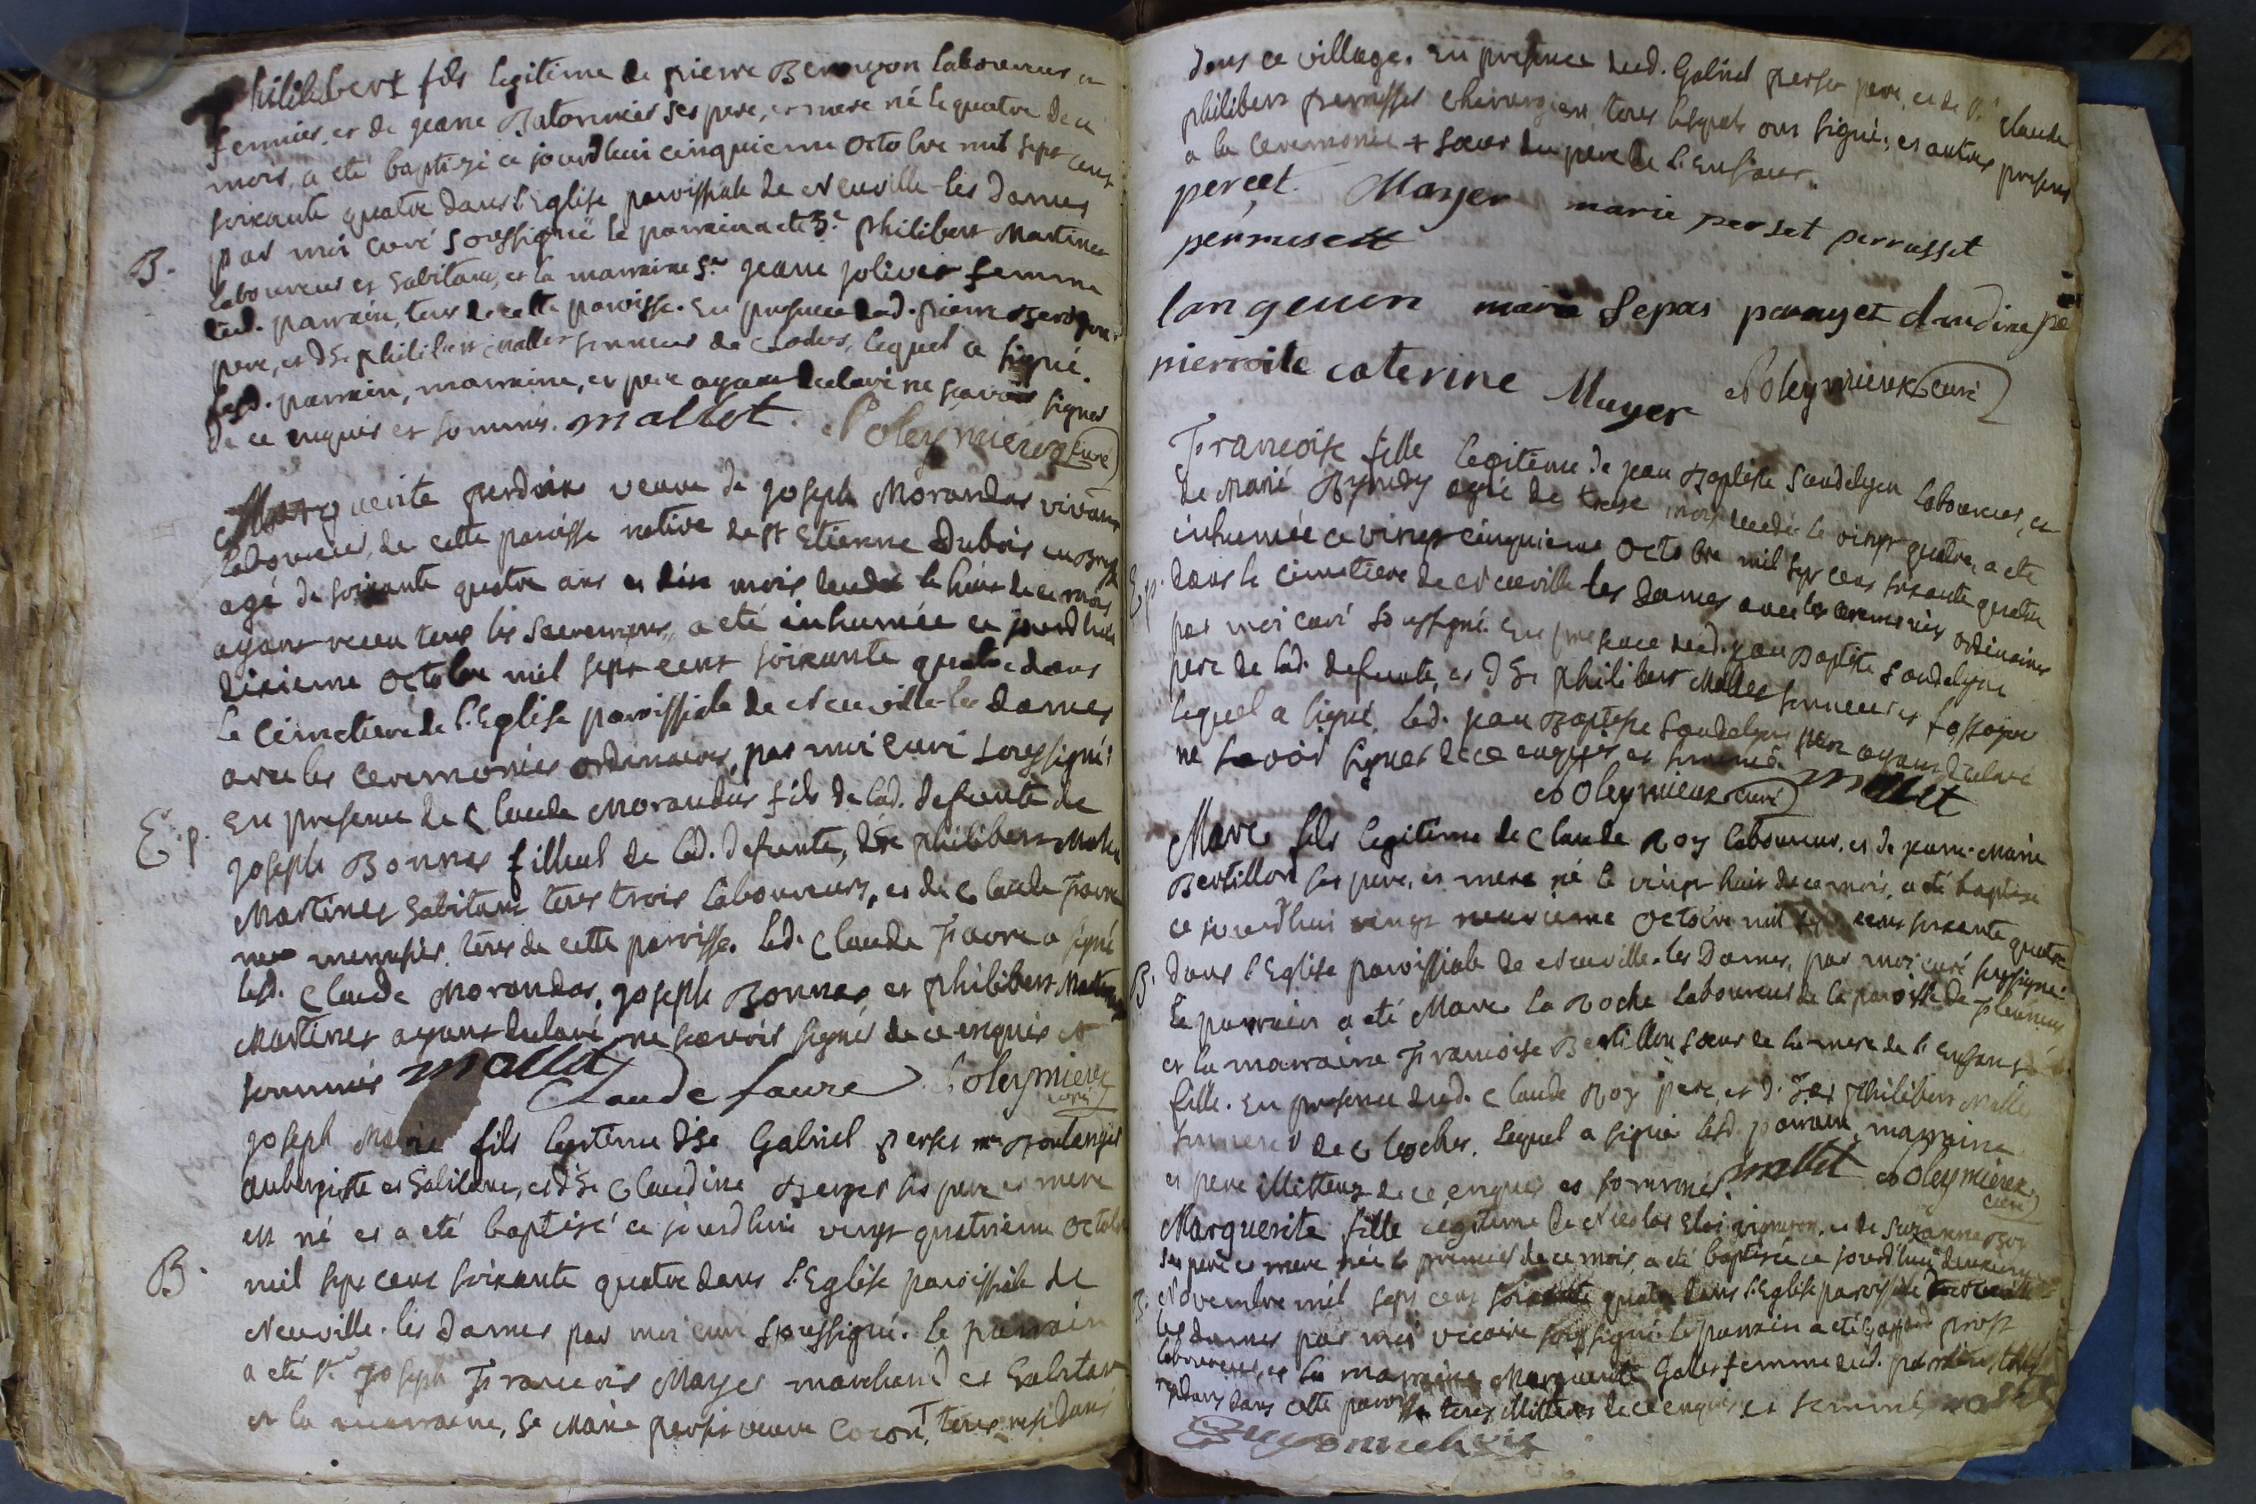 Philibert fils legitime de pierre Benoyon laboureur, et
fermier, et de jeane Ratonnier ses pere, et mere né le quatre de ce
mois, a eté baptizé ce jourdhui cinquieme octobre mil sept cent
soixante quatre dans l'Eglise paroissiale de Neuville-les Dames
par moi curé soussigné le parrain a eté Sr philibert Martinet
B.
laboureur et habitant, et la marraine Se jeane jolivet femme
dud. parrain, tous de cette paroisse. En presence dud. pierre
pere, et de Sr philibert mallet sonneur de cloches, lequel a signé.
lesd. parrain, marraine, et pere ayant declaré ne scavoir signer
de ce enquis et sommis. mallet Poleymieux curé
Marguerite perdrix veuve de joseph Morandas vivant
laboureur, de cette paroisse native de st Etienne Dubois en Bresse
agé de soixante quatre ans et dix mois decedée le huit de ce mois
ayant receu tous les sacremens, a eté inhumée ce jourdhui
dixieme octobre mil sept cent soixante quatre dans
le cimetiere de l'Eglise paroissiale de Neuville les Dames
avec les ceremonies ordinaires, par moi curé soussigné:
en presence de Claude Morandas fils de lad. defunte de
Ep.
joseph Bonnas filleul de lad. defunte, de Sr philibert
Martinet habitant tous trois laboureurs, et de Claude Favre
menusier, tous de cette paroisse. led. Claude Favre a signé
lesd. Claude Morandas, joseph Bonnas, et philibert
Martinet ayant declaré ne scavoir signer de ce enquis et
sommis mallet Claude faure Poleymieux curé
joseph Marie fils legitime de Sr Gabriel perset me Boulanger
aubergiste et habitant, et de Se Claudine Berger ses pere et mere
est né et a eté baptisé ce jourdhui vingt quatrieme octobre
B.
mil sept cent soixante quatre dans l'Eglise paroissiale de
Neuville-les Dames par moi curé soussigné. Le parrain
a eté Sr joseph Francois Mayer marchand et habitant
et la marraine, Se Marie perset veuve Coron, tous residans
dans ce village. En presence dud. Gabriel perset pere, et de Sr Claude
philibert perrusset chirurgien, tous lesquels ont signé; et autres presens
a la ceremonie + soeur du pere de l'enfant.
perçet. Mayer marie perset perrusset
perrusett
langeuin marie
pierroite caterine Mayer Poleymieux curé
Francoise fille legitime de jean Baptiste Sandelyon laboureur, et
de Marie agée de treise mois decedée le vingt quatre, a eté
inhumée ce vingt cinquieme octobre mil sept cent soixante quatre
Ep.
dans le cimetiere de Neuville les Dames avec les ceremonies ordinaires
par moi curé soussigné. En presence dud. jean Baptiste Sandelyon
pere de lad. defunte, et de Sr philibert Mallet sonneur et fossoyeur
lequel a signé. led. jean Baptiste Sandelyon pere ayant declaré
ne scavoir signer de ce enquis et sommé. mallet
Poleymieux curé
Marc fils legitime de Claude Roy laboureur, et de jeane-Marie
Bertillon ses pere, et mere né le vingt huit de ce mois, a eté baptisé
ce jourdhui vingt neuvieme octobre mil sept cent soixante quatre
B.
dans l'Eglise paroissiale de Neuville-les Dames, par moi curé soussigné.
Le parrain a eté Marc La Roche laboureur de la paroisse de
et la marraine Francoise Bertillon soeur de la mere de l'enfant
fille. En presence dud. Claude Roy pere, et de Sr philibert Mallet
sonneur de Cloches. Lequel a signé lesd. parrain, marraine
et pere illitterez de ce enquis et sommés. mallet Poleymieux
curé
Marguerite fille legitime de Nicolas Eloi et de Suzanne
ses pere et mere née le premier de ce mois, a eté baptisée ce jourd'hui deuxieme
Novembre mil sept cent soixante quatre dans l'Eglise paroissiale
les Dames par moi vicaire soussigné. le parrain a eté prost
laboureur, et la marraine Marguerite femme dud. parrain, tous
residans dans cette paroisse tous illitterés de ce enquis et sommés mallet